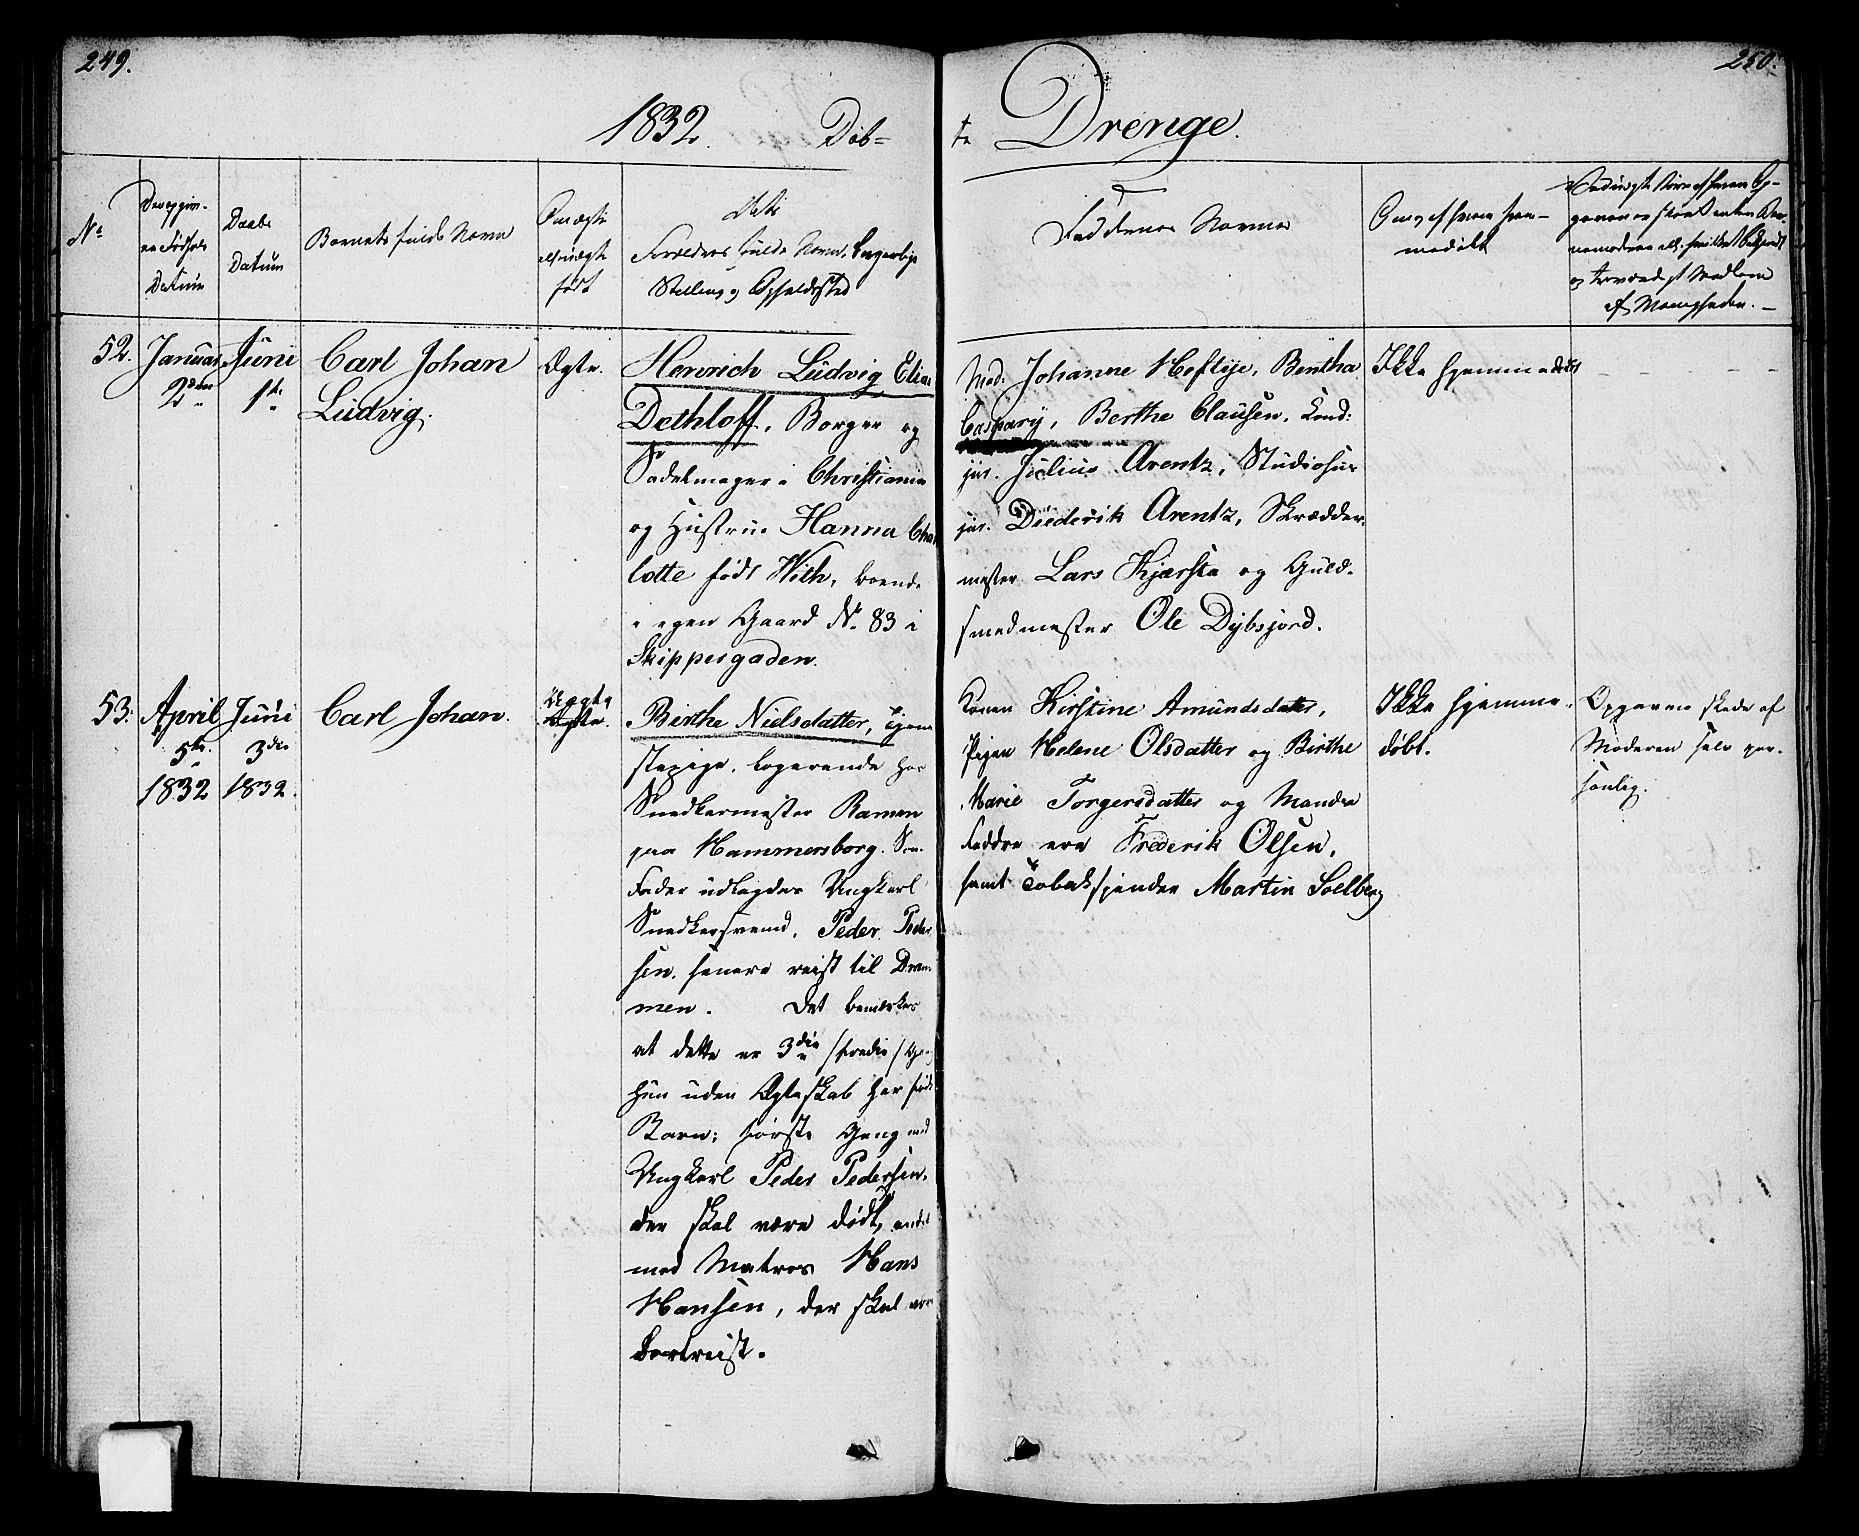 249.
250.
1832. Døb=
te Drenge.
No
Den opgivne Fødsels Datum
Daabs Datum
Barnets fulde Navn
Om ægte eller uægte født
Dets Forældres fulde Navn, borgerlige Stilling og Opholdssted
Faddernes Navne
Om og af hvem hjemmedøbt
af Menigheden. —
52.
Januar
2den
Juni
1ste
Carl Johan
Ludvig.
Ægte.
Henrich Ludvig Elias
Dethloff, Borger og
Sadelmager i Christiania
og Hustrue Hanna Char
lotte født With, boende
i egen Gaard No. 83 i
Skippergaden.
Mad: Johanne Heftije, Bentha
Caspary, Berthe Clausen, Cand:
jur. Julius Arentz, Studiosus
jur. Diederik Arentz, Skrædder
mester Lars Kjærsta og Guld-
smedmester Ole Dybsjord.
Ikke hjemmedøbt
53.
April
5te
1832
Juni
3die
1832.
Carl Johan.
Uægte
Ægte.
Birthe Nielsdatter, Tjene
stepige, logerende hos
Snedkermester Ramen
paa Hammersborg. Som
Fader udlagdes Ungkarl
Snedkersvend, Peder Peder
sen, senere reist til Dram
men. Det bemærkes
at dette er 3die /tredie/ Gang
hun uden Ægteskab har født
Barn; første Gang med
Ungkarl Peder Pedersen,
der skal være død, andet
med Matros Hans
Hansen, der skal være
bortreist.
Konen Kirstine Amundsdatter,
Pigen Helene Olsdatter og Birthe
Marie Torgersdatter og Mandra
Faddre ere Frederik Olsen,
samt Tobakspinder Martin Soelberg
Ikke hjemme-
døbt.
Opgaven skede af
Moderen selv per-
sonlig.